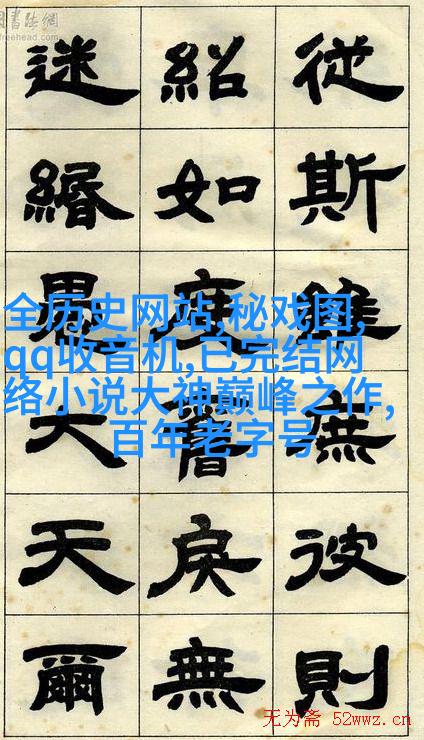 書法網
freehead.com
從斯庶彼則
紹如度戾無
迷緡大天爾
全历史网站,秘戏图,
qq收音机,已完结网
络小说大神巅峰之作,
百年老字号
无为斋 52wwz.cn